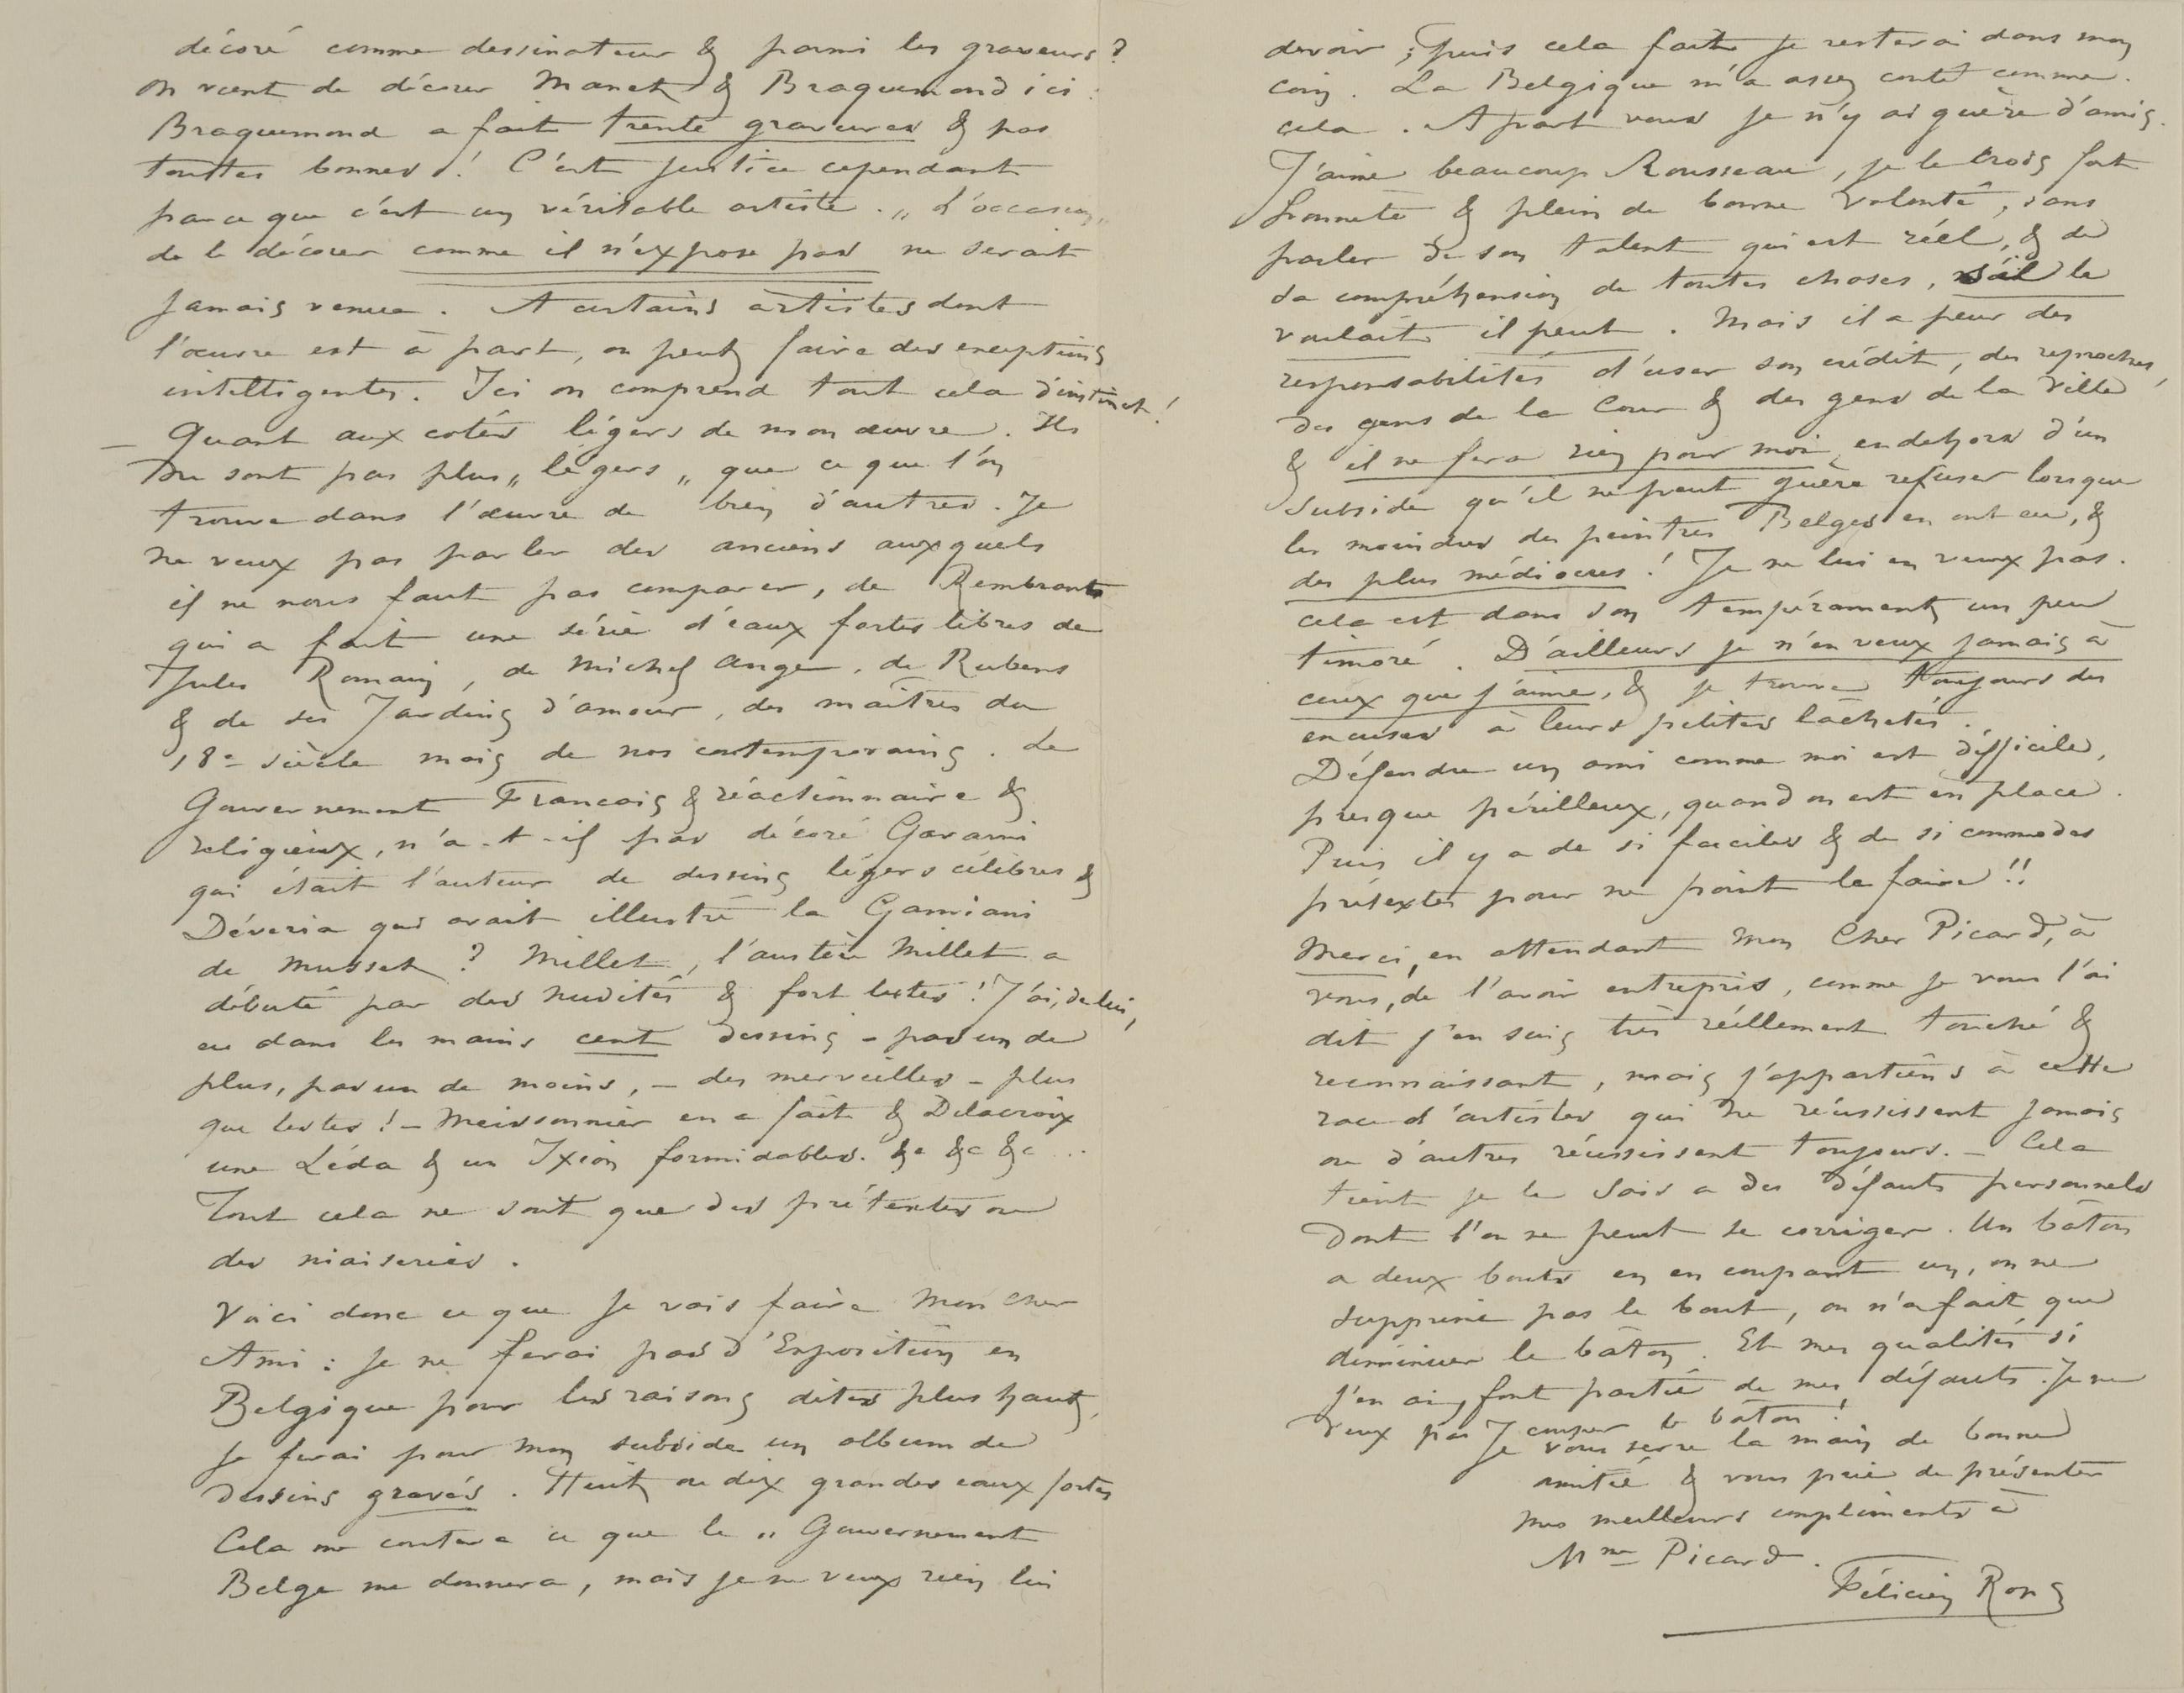 décoré comme dessinateur & parmi les graveurs?
On vient de décorer Manet & Braquemond ici.
Braquemond a fait trente gravures & pas
toutes bonnes! C'est justice cependant
parce que c'est un véritable artiste. „L'occasion„
de le décorer comme il n'expose pas ne serait
jamais venue. A certains artistes dont
l'œuvre est à part, on peut faire des exceptions
intelligentes. Ici on comprend tout cela d'instinct!
— Quant aux cotés légers de mon œuvre. Ils
ne sont pas plus „légers„ que ce que l'on
trouve dans l'œuvre de bien d'autres. Je
ne veux pas parler des anciens auxquels
il ne nous faut pas comparer, de Rembrant
qui a fait une série d'eaux fortes libres de
Jules Romain, de Michel Ange, de Rubens
& de ses Jardins d'amour, des maîtres du
18e siècle mais de nos contemporains. Le
Gouvernement Francais & réactionnaire &
religieux, n'a-t-il pas décoré Gavarni
qui était l'auteur de dessins légers célèbres &
Déveria qui avait illustré la Gamiani
de Musset? Millet, l'austère Millet a
débuté par des nudités & fort lestes! J'ai, de lui,
eu dans les mains cent dessins - pas un de
plus, pas un de moins, — des merveilles - plus
que lestes! — Meissonnier en a fait & Delacroix
une Léda & un Ixion formidables. &c &c &c ...
Tout cela ne sont que des prétextes ou
des niaiseries.
Voici donc ce que je vais faire mon cher
Ami: je ne ferai pas d'Exposition en
Belgique pour les raisons dites plus haut,
je ferai pour mon subside un album de
dessins gravés. Huit ou dix grandes eaux fortes
Cela me coutera ce que le „Gouvernement
Belge me donnera, mais je ne veux rien lui
devoir; puis cela fait je resterai dans mon
coin. La Belgique m'a assez conté comme
cela. A part vous je n'y ai guère d'amis.
J'aime beaucoup Rousseau, je le crois fort
honnete & plein de bonne volonté, sans
parler de son talent qui est réel, & de
sa compréhension de toutes choses, s'il le
voulait il peut. Mais il a peur des
responsabilités d'user son crédit, des reproches,
des gens de la Cour & des gens de la Ville
& il ne fera rien pour moi, en dehors d'un
subside qu'il ne peut guère refuser lorsque
les moindres des peintres Belges en ont eu, &
des plus médiocres! Je ne lui en veux pas.
cela est dans son tempérament un peu
timoré. D'ailleurs je n'en veux jamais à
ceux que j'aime, & je trouve toujours des
excuses à leurs petites lâchetés.
Défendre un ami comme moi est difficile,
presque périlleux, quand on est en place.
Puis il y a de si faciles & de si commodes
prétextes pour ne point le faire!!
Merci, en attendant mon Cher Picard, à
vous, de l'avoir entrepris, comme je vous l'ai
dit j'en suis très réellement touché &
reconnaissant, mais j'appartiens à cette
race d'artistes qui ne réussissent jamais
ou d'autres réussissent toujours. — Cela
tient je le sais a des défauts personnels
dont l'on ne peut se corriger. Un bâton
a deux bouts en en coupant un, on ne
supprime pas le bout, on n'a fait que
diminuer le bâton. Et mes qualités si
j'en ai, font partie de mes défauts. Je ne
veux pas couper le bâton!
Je vous serre la main de bonne
amitié & vous prie de présenter
mes meilleurs compliments à
Mme Picard.
Félicien Rops